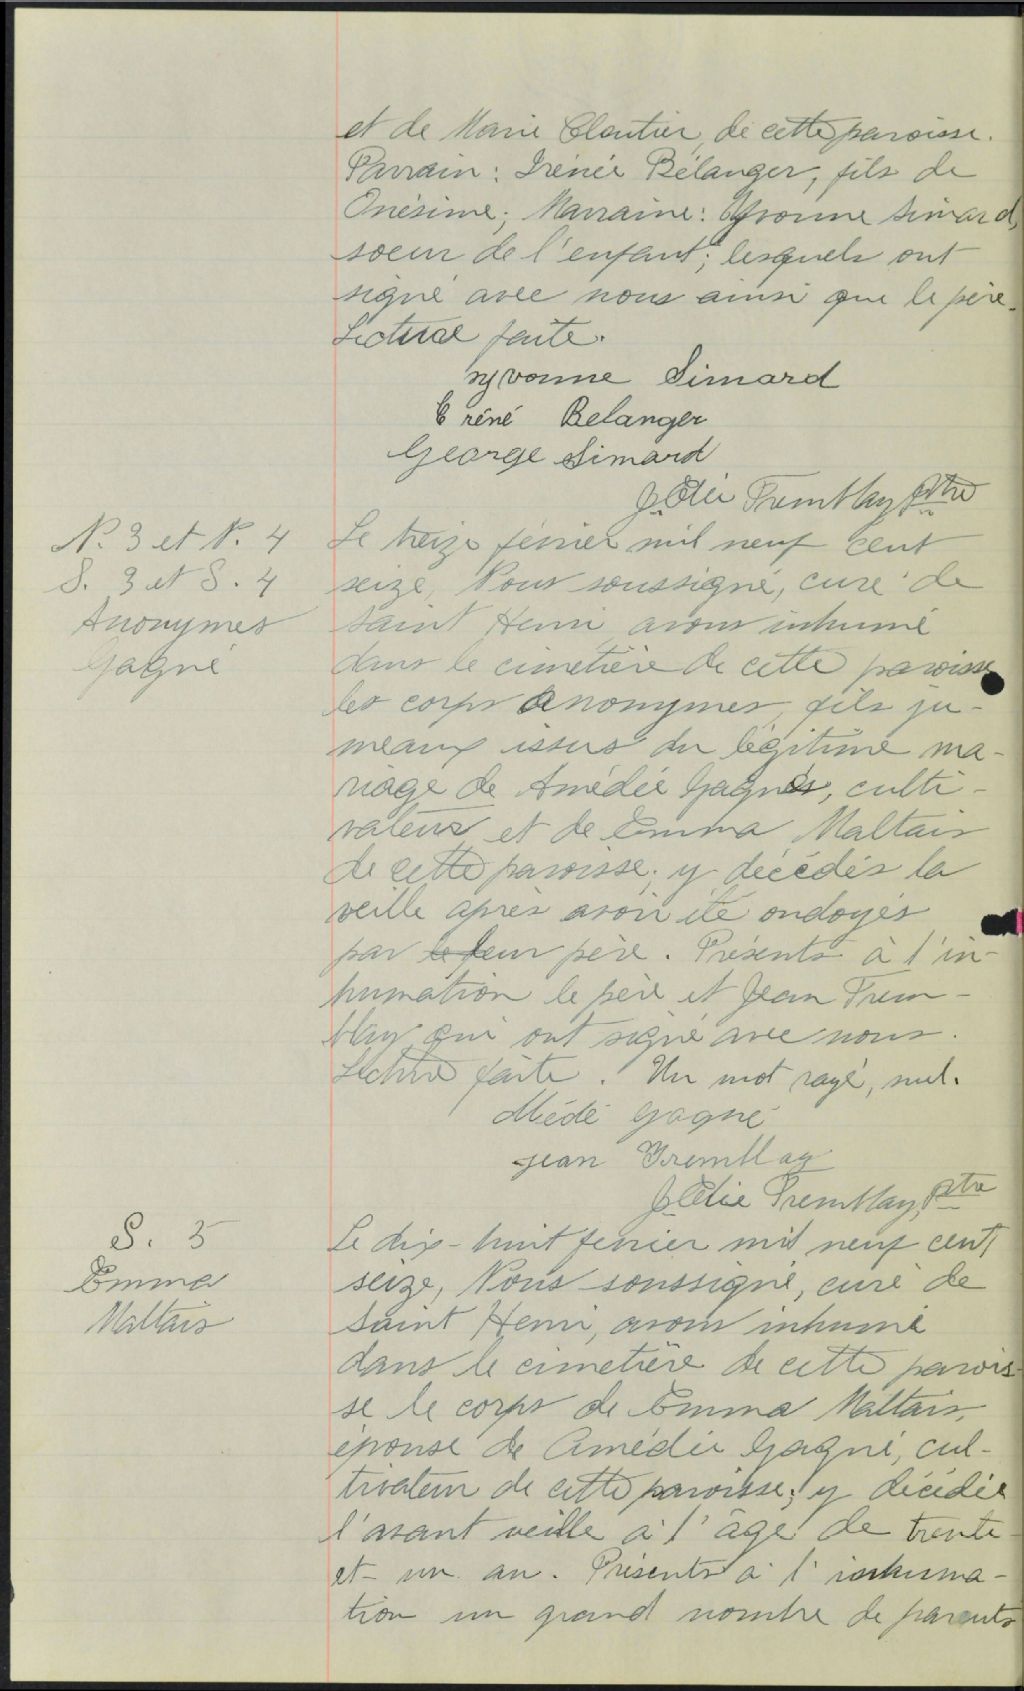 et de Marie Cloutier, de cette paroisse.
Parrain: Irénée Bélanger, fils de
Onésime; Marraine: Yvonne Simard,
soeur de l'enfant; lesquels ont
signé avec nous ainsi que le père.
Lecture faite.
Yvonne Simard
Eréné Belanger
George Simard
J. Elie Tremblay ptre
N. 3 et N. 4
S. 3 et S. 4
Anonymes
Gagné
Le treize février mil neuf cent
seize, Nous soussigné, curé de
Saint Henri avons inhumé
dans le cimetière de cette paroisse
les corps Anonymes, fils ju-
meaux issus du légitime ma-
riage de Amédée Gagné, culti-
vateur et de Emma Maltais
de cette paroisse; y décédés la
veille après avoir été ondoyés
par le leur père. Présents à l'in-
humation le père et Jean Trem-
blay qui ont signé avec nous.
Lecture faite. Un mot rayé, nul.
Médé Gagné
Jean Tremblay
J. Elie Tremblay, ptre
S. 5
Emma
Maltais
Le dix-huit fevrier mil neuf cent
seize, Nous soussigné, curé de
Saint Henri, avons inhumé
dans le cimetière de cette parois-
se le corps de Emma Maltais,
épouse de Amédée Gagné, cul-
tivateur de cette paroisse; y décédée
l'avant veille à l'âge de trente-
et-un an. Présents à l'inhuma-
tion un grand nombre de parents